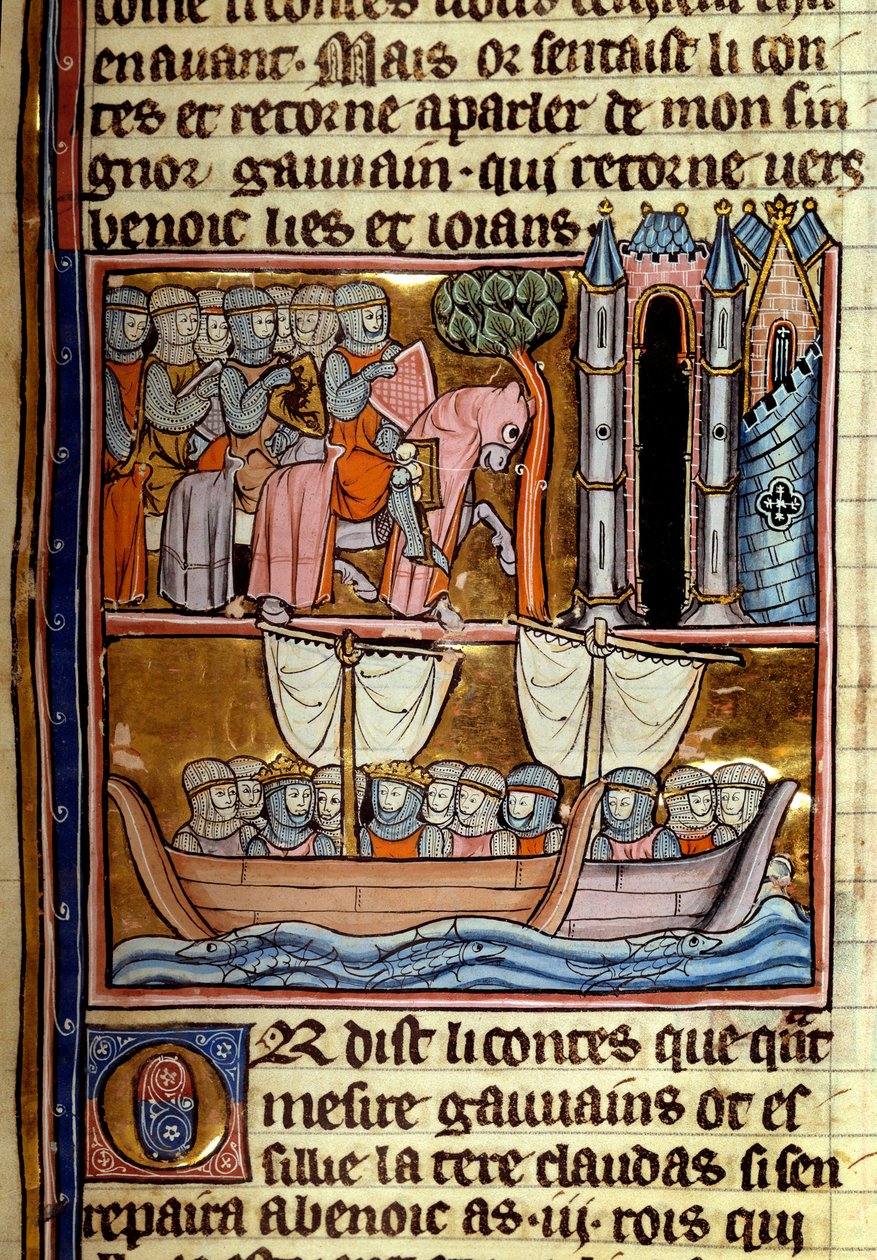 enauant. Mais or sentaist li con
tes et retorne a parler de mon sin
gnor gauuain. qui retorne uers
benoic lies et ioians.
OR dist li contes que q̄nt
mesire gauuains ot es
sillie la tere claudas si sen
repaira a benoic as .iij. rois qui